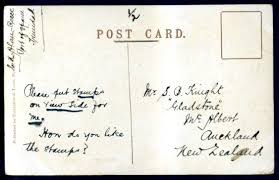 1/2
Port of Spain
Trinidad
POST CARD.
Please put stamps
on View Side for
me.
How do you like
the stamps?
Mr. S. A. Knight
"Gladstone"
Mt. Albert
Auckland
New Zealand